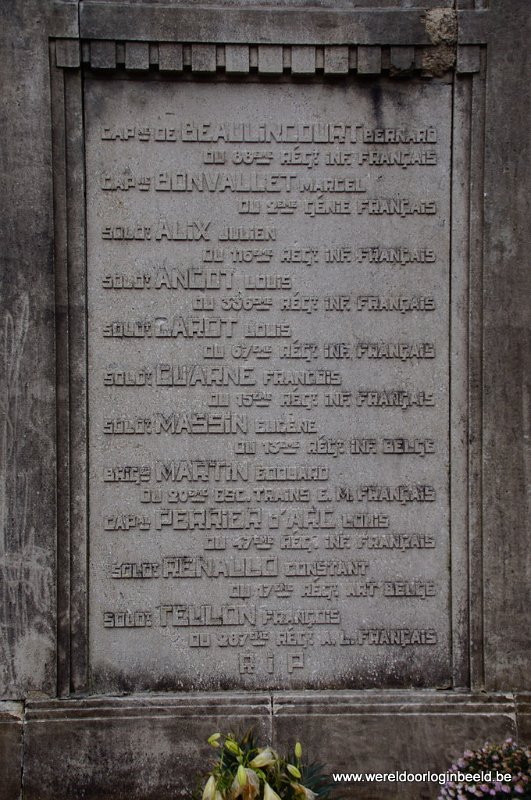 CAPNE DE BEAULINCOURT BERNARD
DU 68ME RÉGT INF. FRANÇAIS
CAPAL BONVALLET MARCEL
DU 9EME GÉNIE FRANÇAIS
SOLDT ALIX JULIEN
DU 116ME RÉGT INF. FRANÇAIS
SOLDT ANGOT LOUIS
DU 336ME RÉGT INF. FRANÇAIS
SOLDT CAROT LOUIS
DU 67ME RÉGT INF. FRANÇAIS
SOLDT GUARNE FRANCOIS
DU 15ME RÉGT INF. FRANÇAIS
SOLDT MASSIN EUGÈNE
DU 13ME RÉGT INF. BELGE
MARTIN EDOUARD
DU 20ME ESC. TRAINS E. M. FRANÇAIS
CAPAL PERRIER D'ARC LOUIS
DU 47ME RÉGT INF. FRANÇAIS
SOLDT RENAULD CONSTANT
DU 17ME RÉGT ART BELGE
SOLDT TEULON FRANÇOIS
DU 287ME RÉGT A. L. FRANÇAIS
R I P
www.wereldoorloginbeeld.be